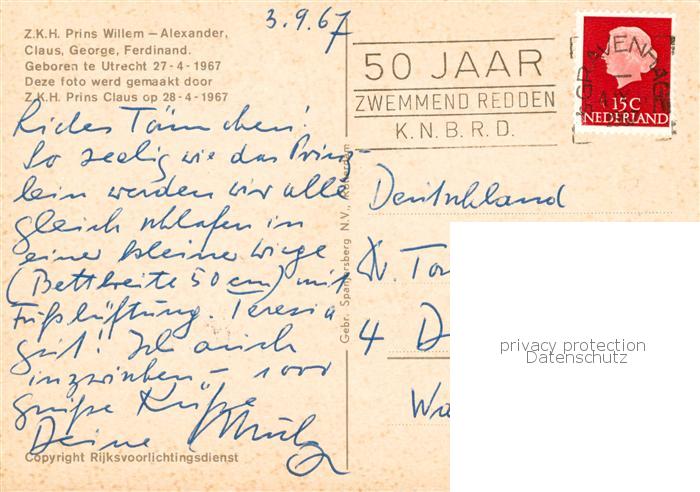 3.9.67
Z.K.H. Prins Willem – Alexander,
Claus, George, Ferdinand.
Geboren te Utrecht 27-4-1967
Deze foto werd gemaakt door
Z.K.H. Prins Claus op 28-4-1967
50 JAAR
ZWEMMEND REDDEN
K.N.B.R.D.
'S GRAVENHAGE
15 C
NEDERLAND
So seelig wie das Prinz-
lein werden wir alle
gleich schlafen in
einer kleinen Wiege
(Bettbreite 50 cm) mit
Fußlüftung. Teresia
gut! Ich auch
inzwischen – 1000
Küsse
Deine
Gebr. Spanjersberg N.V., Rotterdam
Deutschland
4 D
Copyright Rijksvoorlichtingsdienst
privacy protection
Datenschutz